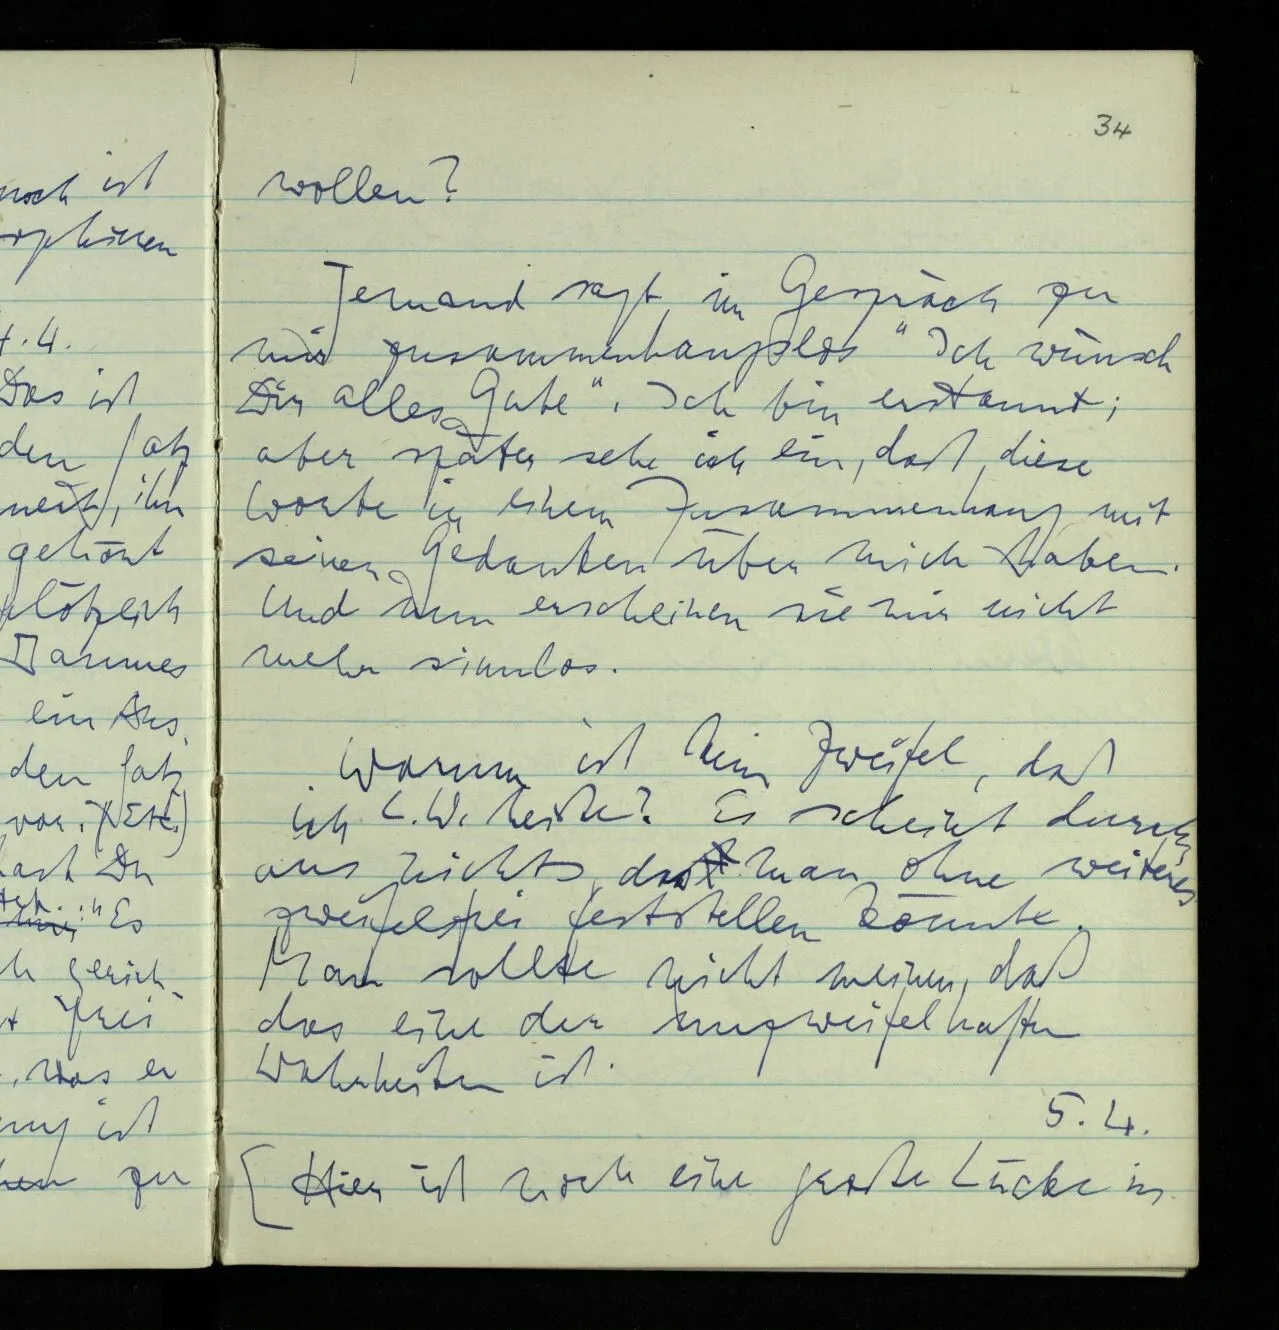 noch ist
4.4.
Das ist
den Satz
meint, ihn
gehört
plötzlich
Mannes
ein Aus-
den Satz
vor. (Etc.)
hast Du
" Es
gerich-
frei
, was er
ist
zu
34
wollen?
Jemand sagt im Gespräch zu
mir zusammenhangslos "Ich wünsch
Dir alles Gute". Ich bin erstaunt;
aber später sehe ich ein, daß diese
Worte in einem Zusammenhang mit
seinen Gedanken über mich haben.
Und nun erscheinen sie mir nicht
mehr sinnlos.
Warum ist kein Zweifel, daß
ich L.W. heiße? Es scheint durch-
aus nichts, das man ohne weiteres
zweifelfrei feststellen könnte.
Man sollte nicht meinen, daß
das eine der unzweifelhaften
Wahrheiten ist.
5.4.
[Hier ist noch eine große Lücke in